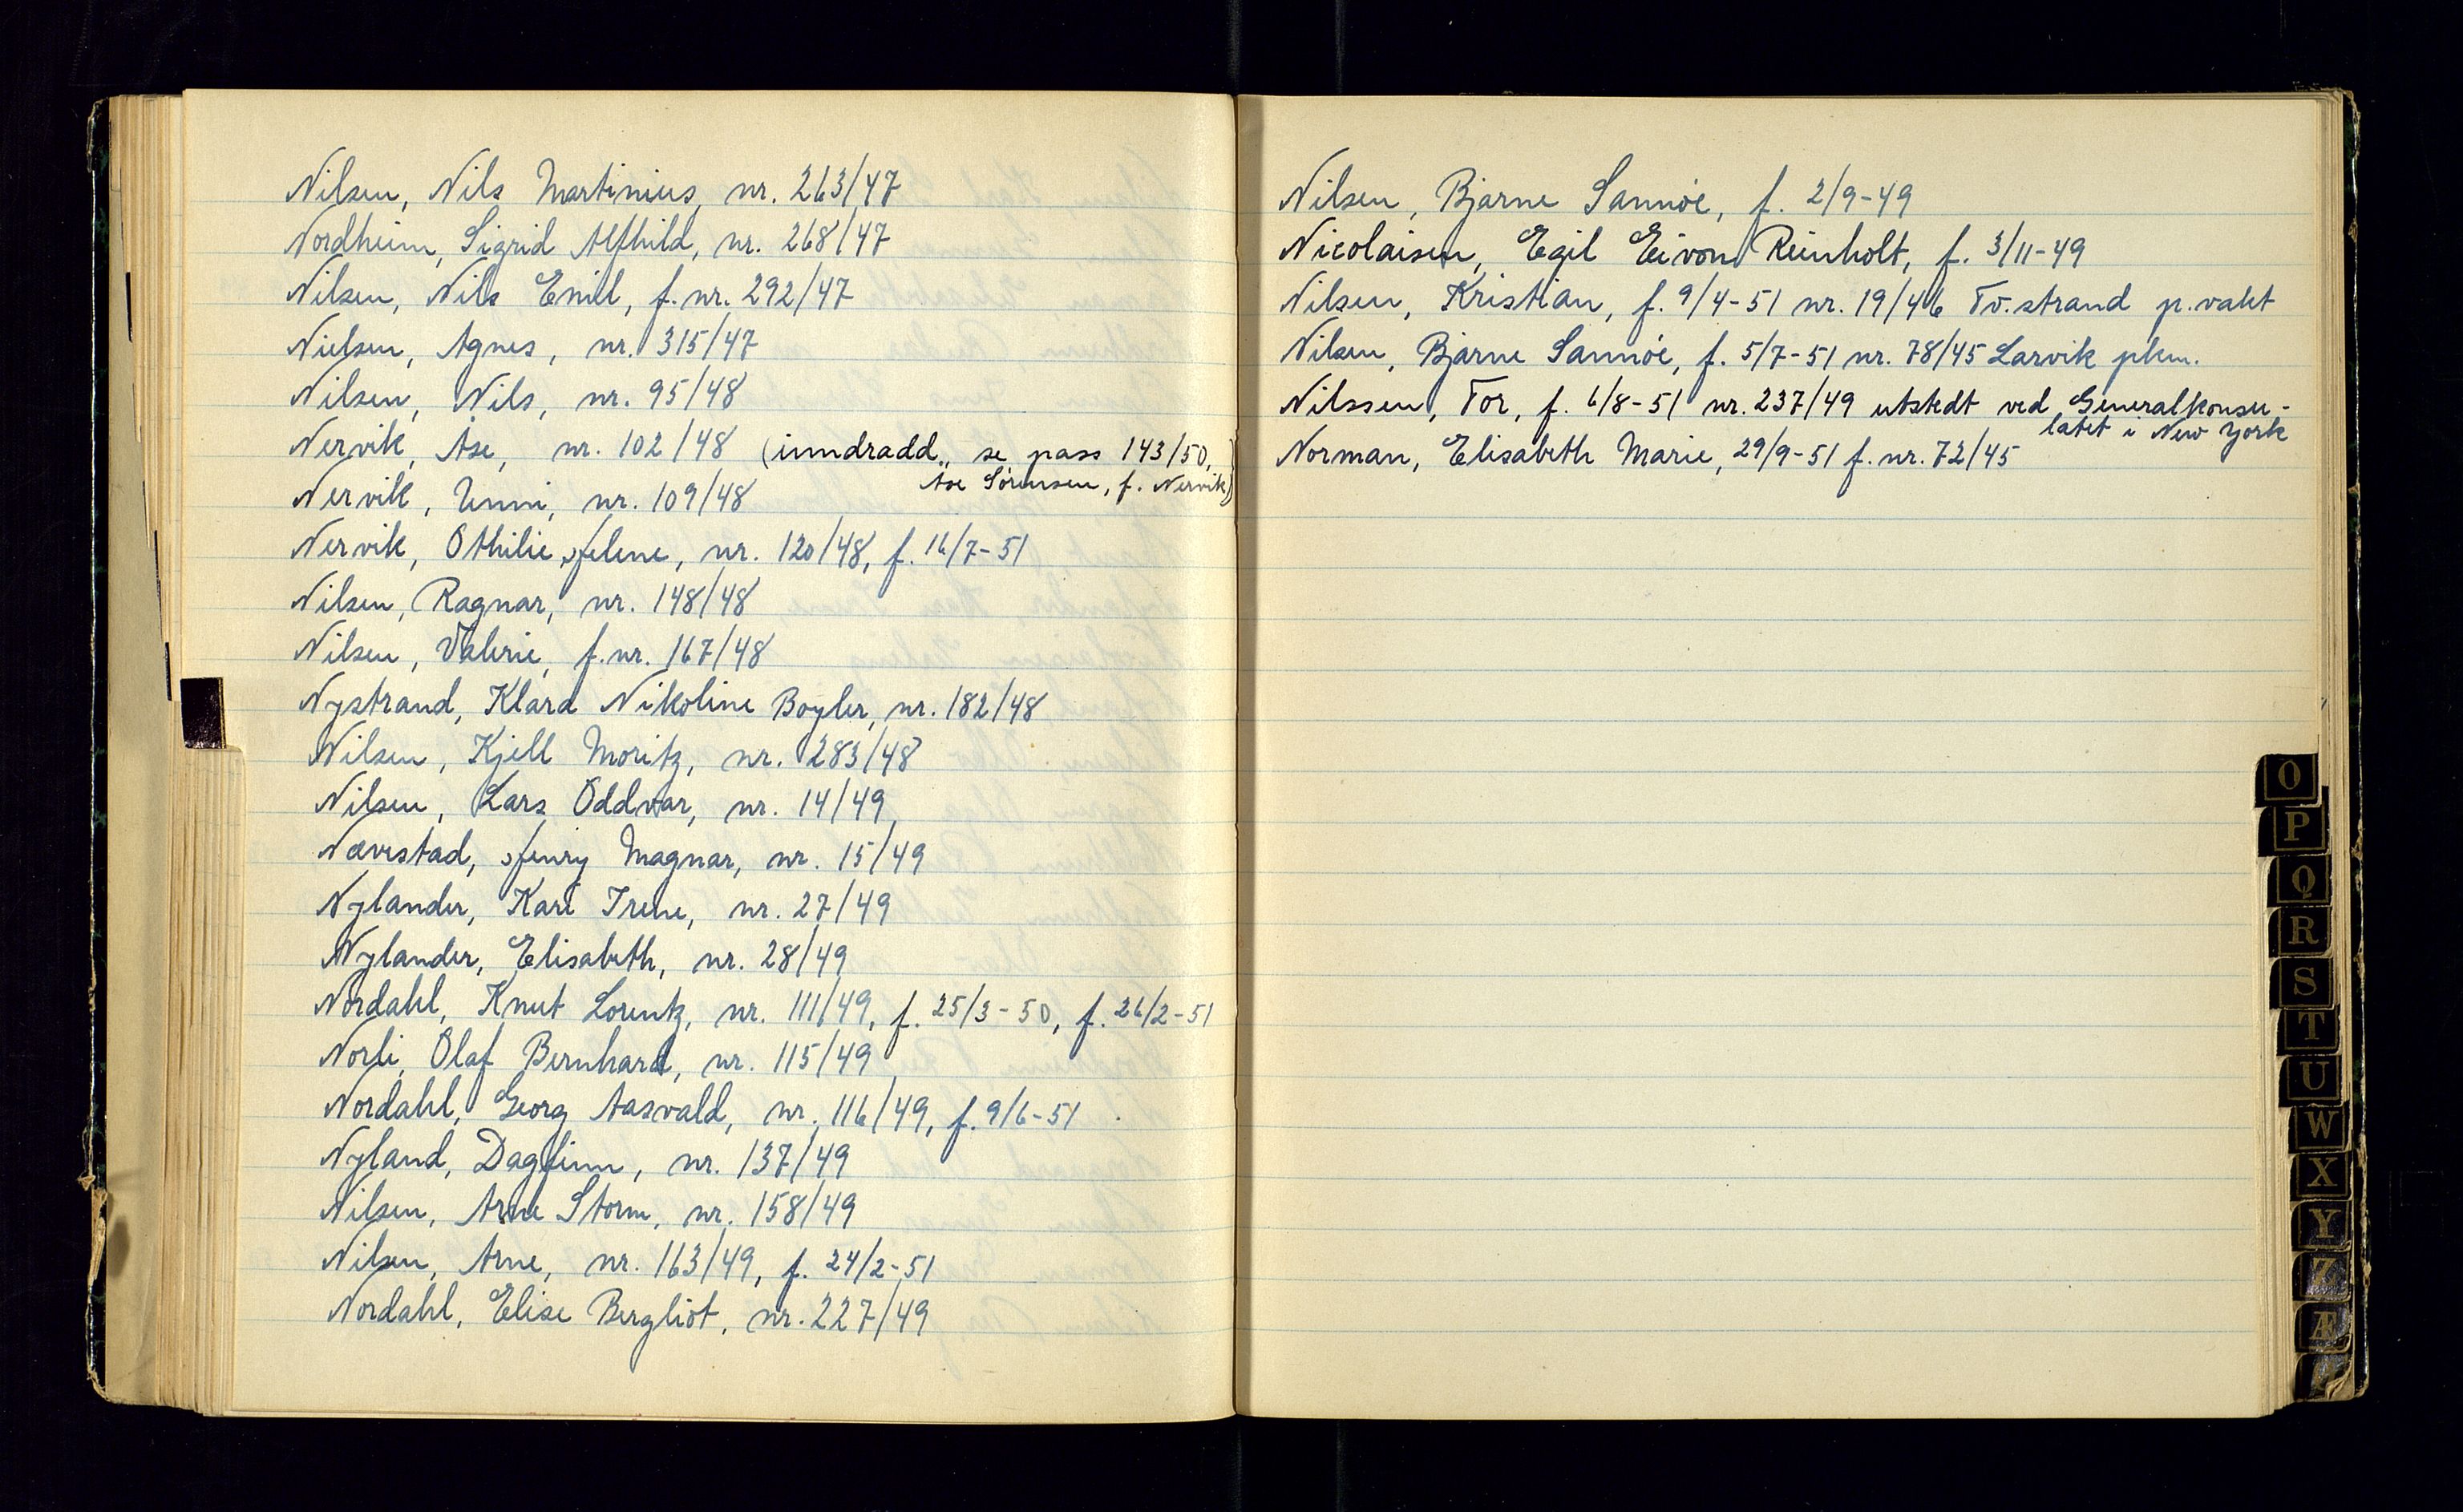 Nilsen, Nils Martinius, nr. 263/47
Nordheim, Sigrid Alfhild, nr. 268/47
Nilsen, Nils Emil, f. nr. 292/47
Nielsen, Agnes, nr. 315/47
Nilsen, Nils, nr. 95/48
Nervik, Åse, nr. 102/48 (inndradd., se pass 143/50,
Åse Sørensen, f. Nervik)
Nervik, Unni, nr. 109/48
Nervik, Othilie Helene, nr. 120/48, f. 16/7-51
Nilsen, Ragnar, nr. 148/48
Nilsen, Valerie, f. nr. 167/48
Nystrand, Klara Nikoline Boyler, nr. 182/48
Nilsen, Kjell Moritz, nr. 283/48
Nilsen, Lars Oddvar, nr. 14/49
Nævestad, Henry Magnar, nr. 15/49
Nylander, Kari Irene, nr. 27/49
Nylander, Elisabeth, nr. 28/49
Nordahl, Knut Lorentz, nr. 111/49, f. 25/3-50, f. 26/2-51
Norli, Olaf Bernhard, nr. 115/49
Nordahl, Georg Aasvald, nr. 116/49, f. 9/6-51
Nyland, Dagfinn, nr. 137/49
Nilsen, Arne Storm, nr. 158/49
Nilsen, Arne, nr. 163/49, f. 24/2-51
Nordahl, Elise Bergliot, nr. 227/49
Nilsen, Bjarne Sannøe, f. 2/9-49
Nicolaisen, Egil Eivon Reinholt, f. 3/11-49
Nilsen, Kristian, f. 9/4-51 nr. 19/46 Tv.strand p.vakt
Nilsen, Bjarne Sannøe, f. 5/7-51 nr. 78/45 Larvik pkm.
Nilssen, Tor, f. 6/8-51 nr. 237/49 utstedt ved Generalkonsu-
latet i New York
Norman, Elisabeth Marie, 29/9-51 f. nr. 72/45
O
P
Q
R
S
T
U
W
X
Y
Z
Æ